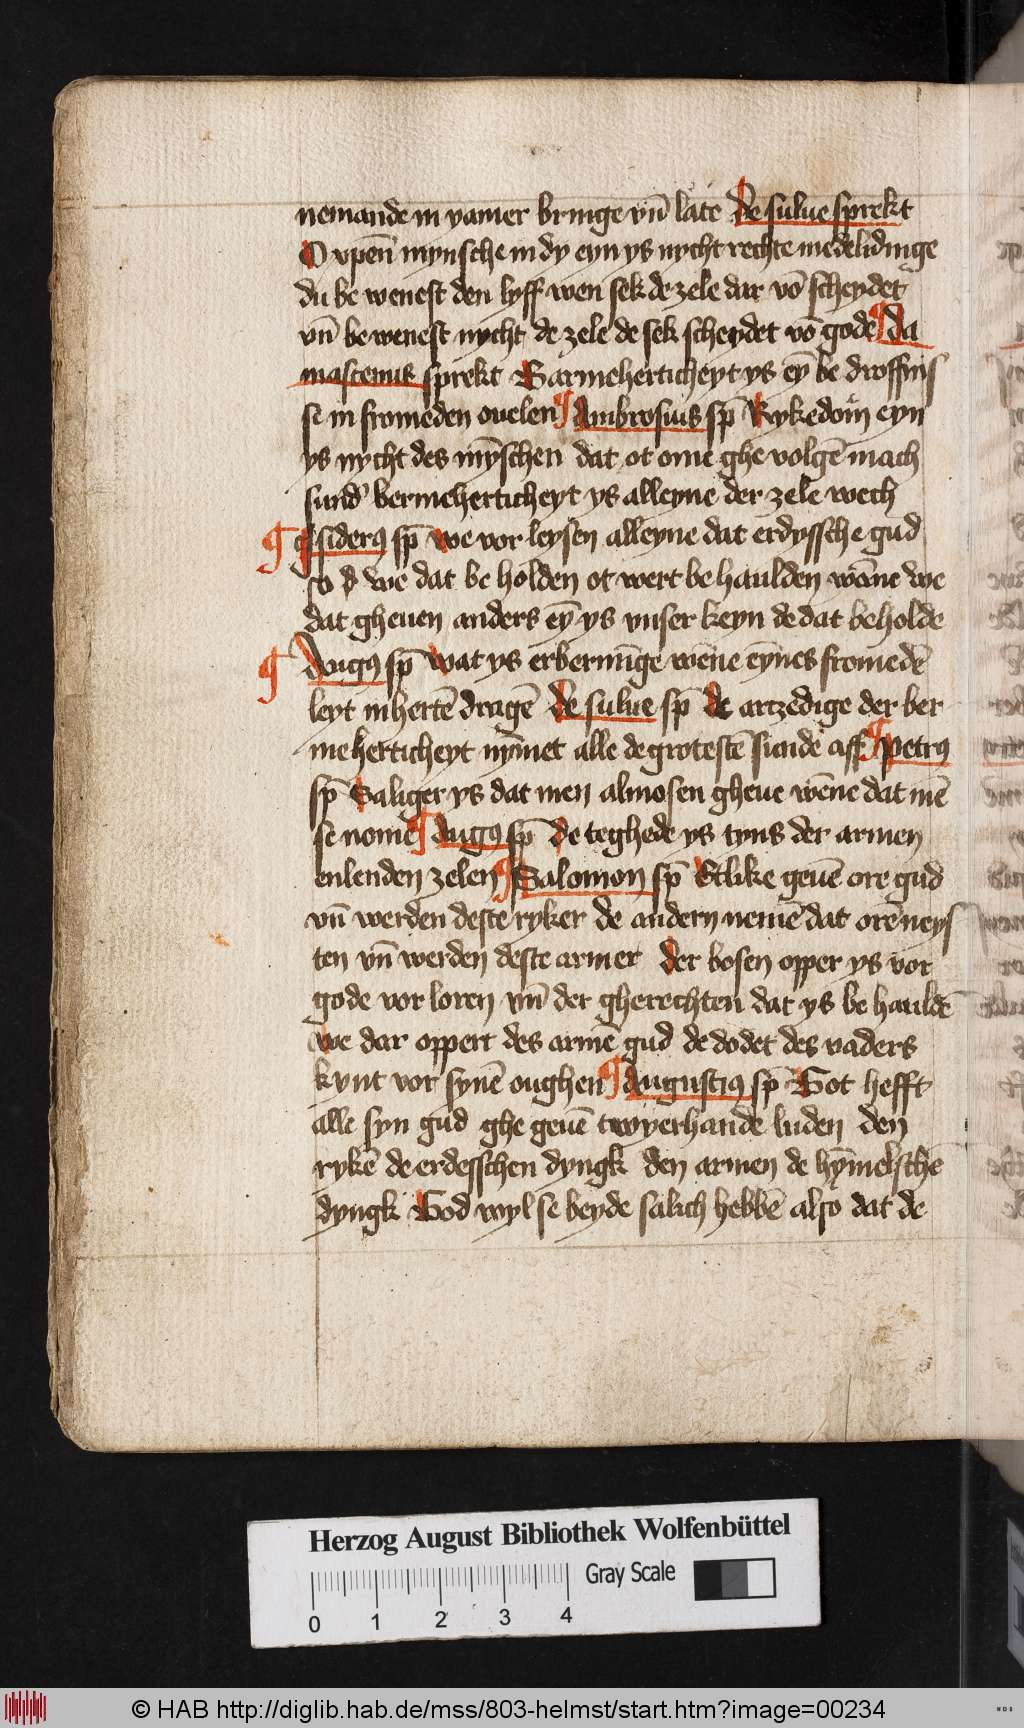 nemande in yamer bringe vn̄ late de sulue sprekt
O vpen̄ mynsche in dy eyn ys nycht rechte medelidinge
du be wenest den lyff wen sek de zele dar vō scheydet
vn̄ be wenest nycht de zele de sek scheydet vō gode ¶ Da
mascenus sprekt Barmeherticheyt ys eȳ be droffnis
se in fromeden ouelen ¶ Ambrosius sp̄ Rykedom eyn
ys nycht des mȳschen dat ot ome ghe volgē mach
sund' bermeherticheyt ys alleyne der zele wech
¶ sp̄ we vor leysen alleyne dat erdyssche gud
so we dat be holden ot wert be haulden wāne we
dat gheuen anders eȳ ys vnser keyn de dat beholde
¶ Augꝰ sp̄ wat ys erbermīge wēne eynes fromedē
leyt in hertē dragē de sulue sp̄ de artzedige der ber
meherticheyt nȳmet alle de grotestē sunde aff ¶ Petrꝰ
sp̄ Saliger ys dat men almosen gheue wēne dat mē
se nome ¶ Augꝰ sp̄ de teghede ys tyns der armen
enlenden zelen ¶ Salomon sp̄ Etlike geuē ore gud
vn̄ werden deste ryker de andern nemē dat orē neys
ten vn̄ werden deste armer der bosen opper ys vor
gode vor loren vn̄ der gherechten dat ys be hauldē
we dar oppert des armē gud de dodet des vaders
kynt vor synē oughen ¶ Augustiꝰ sp̄ Got hefft
alle syn gud ghe geuē twyerhande luden den
rykē de erdesschen dyngk den armen de hȳmelschē
dyngk God wyl se beyde salich hebbē also dat de
Herzog August Bibliothek Wolfenbüttel
Gray Scale
0 1 2 3 4
© HAB http://diglib.hab.de/mss/803-helmst/start.htm?image=00234